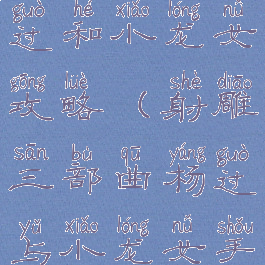 guò hé xiǎo lóng nǚ
过和小龙女
gōng lüè shè diāo
攻略（射雕
sān bù qū yáng guò
三部曲杨过
yǔ xiǎo lóng nǚ shǒu
与小龙女手